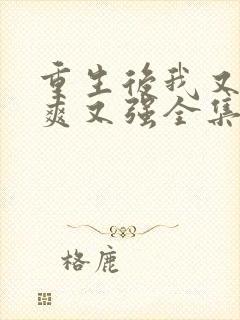 重生后我又
爽又强全集
格鹿